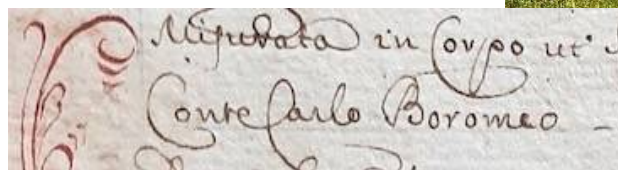 Misurata in Corpo ut
Conte Carlo Boromeo -